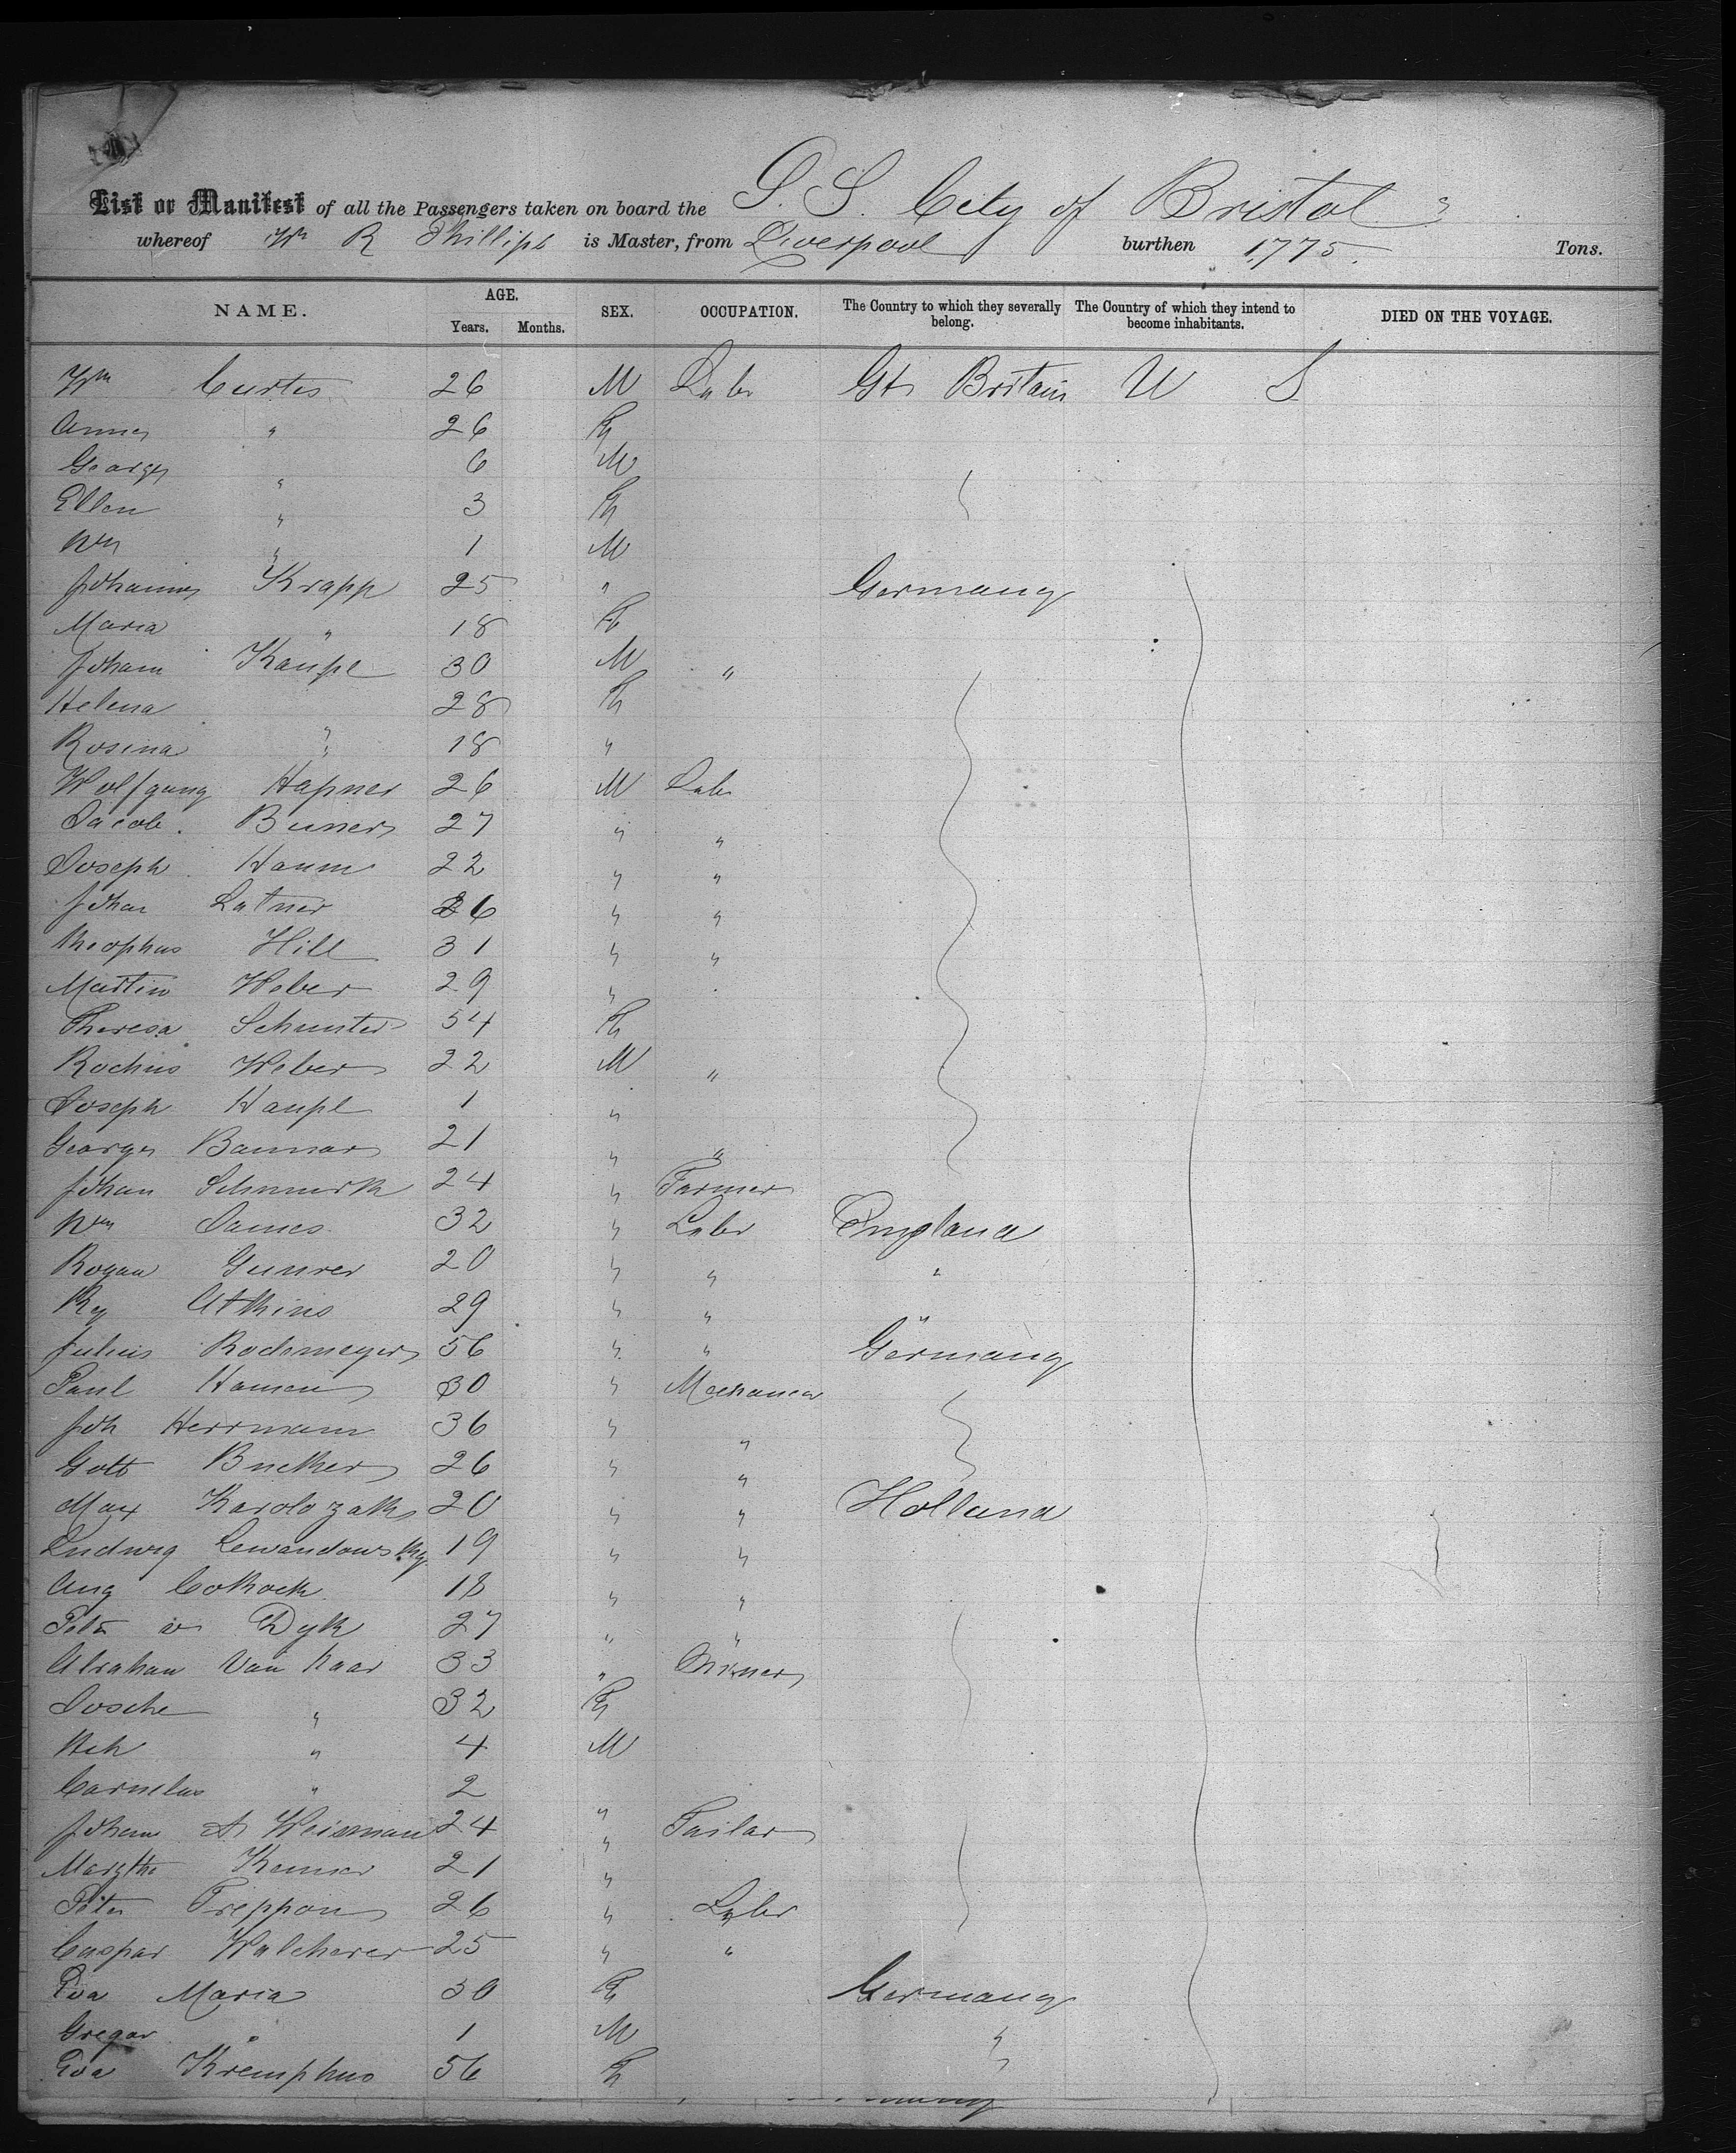 List or Manifest of all the Passengers taken on board the S. S. City of Bristol
whereof Wm R Phillips is Master, from Liverpool burthen 1775 Tons.
NAME. AGE. Years. Months. SEX. OCCUPATION. The Country to which they severally belong. The Country of which they intend to become inhabitants. DIED ON THE VOYAGE.
Wm Curtis 26 M Labr Gt Britain U S
Anne " 26 F
George " 6 M
Ellen " 3 F
Wm " 1 M
Johannes Krapp 25 " Germany
Maria " 18 F
Johann Kaupl 30 M "
Helena 28 F
Rosina " 18 "
Wolfgang Hapner 26 M Labr
Jacob. Buiner 27 " "
Joseph Hamm 22 " "
Johan Latner 26 " "
Theophus Hill 31 " "
Martin Weber 29 "
Theresa Schunter 54 F
Rochus Weber 22 M "
Joseph Haupl 1 "
George Bannar 21 " "
Johan 24 " Farmer
Wm James 32 " Labr England
Rogan Gunrer 20 " " "
Ry Atkins 29 " " "
Julius Rodemeyer 56 " " Germany
Paul Hamen 30 " Mechanic
Joh Herrmann 36 " "
Gott Bucker 26 " "
Max Karolozak 20 " " Holland
Ludwig Lewandowsky 19 " "
Aug Cothock 18 " "
Peter v Dyk 27 " "
Abraham Van Haar 33 "
Josche " 32 F
Hch " 4 M
Cornelus " 2 "
Johann A Weisman 24 " Tailor
Margtha Kemer 21 "
Peter Treppon 26 " Labr
Caspar Walcherer 25 " "
Eva Maria 30 F Germany
Gregor " 1 M "
Eva Kremphus 56 F "